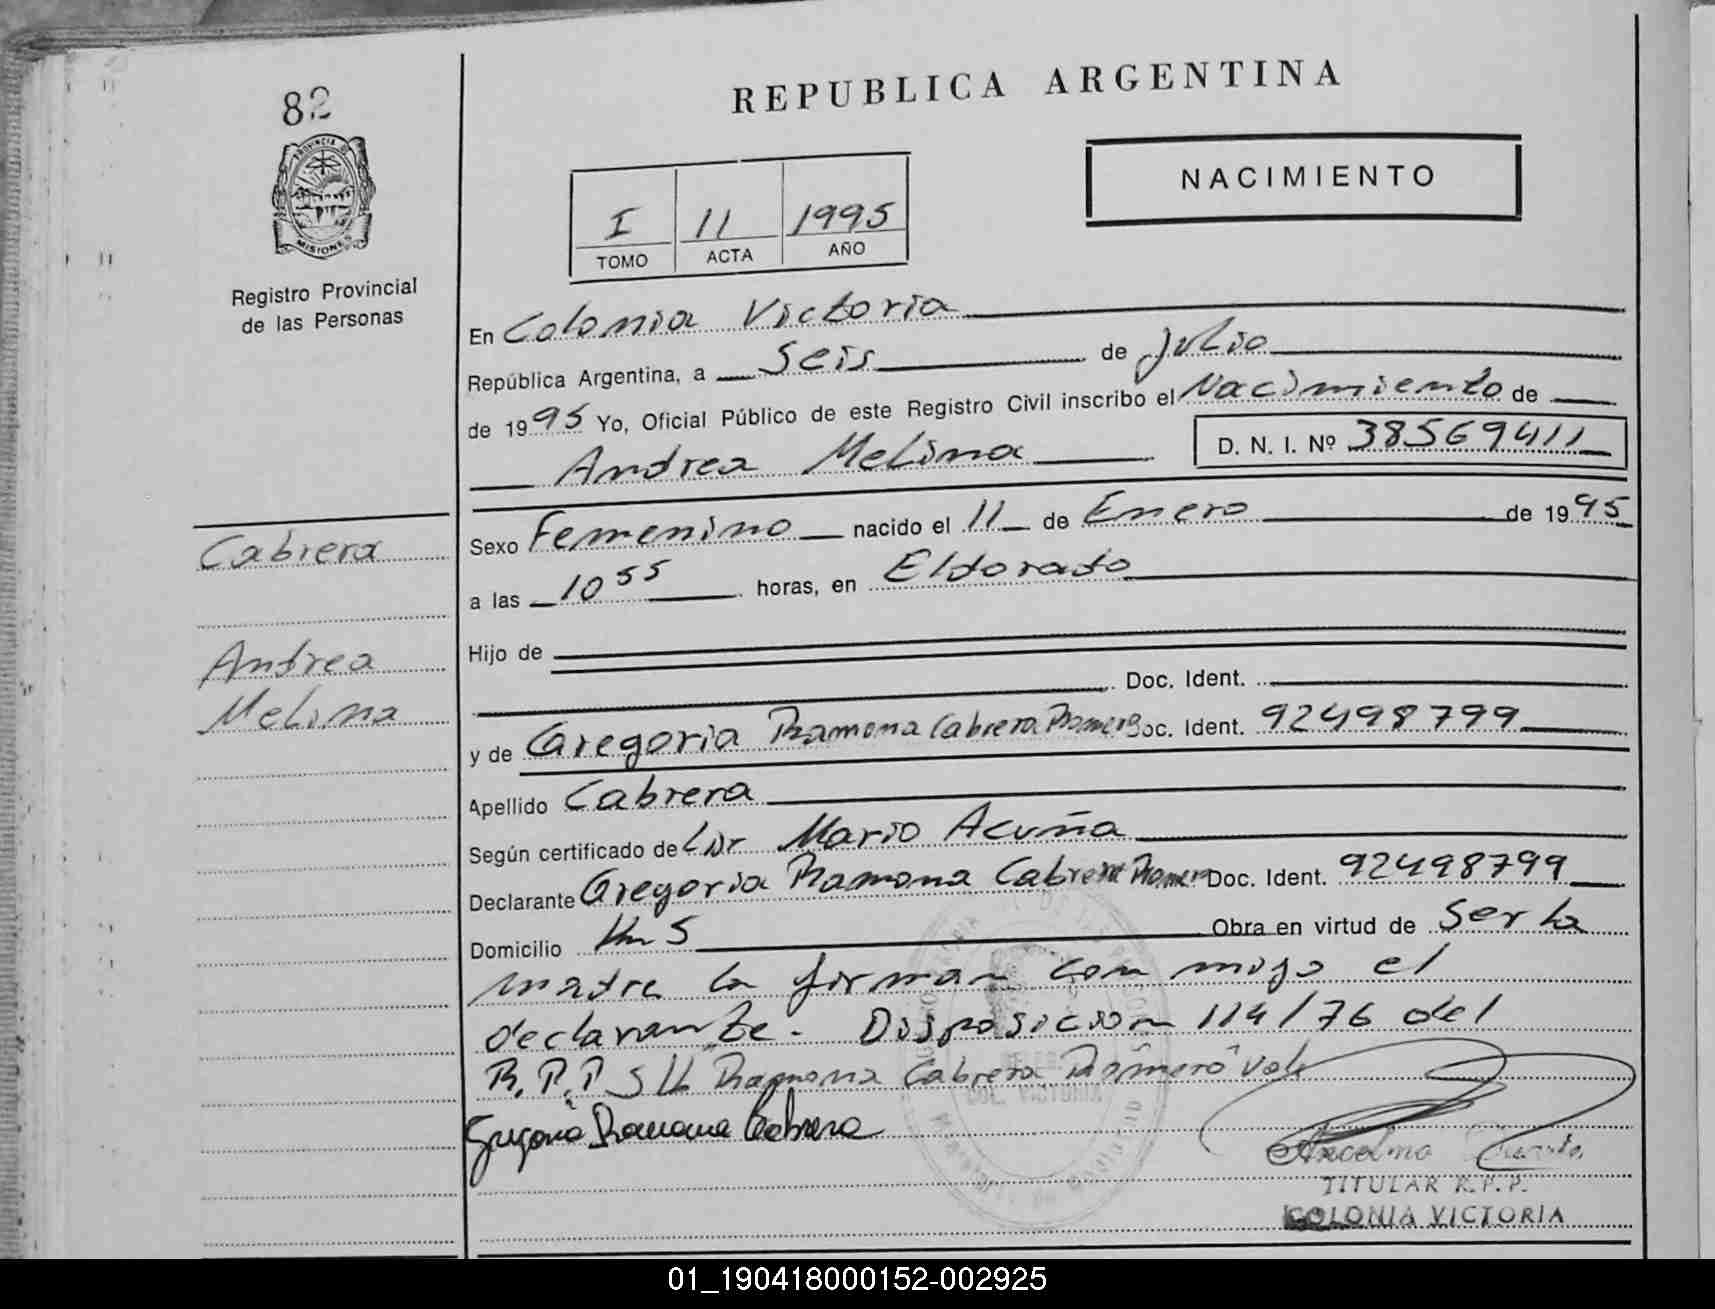 82
REPUBLICA ARGENTINA
NACIMIENTO
PROVINCIA DE
MISIONES
Registro Provincial
de las Personas
I 11 1995
TOMO ACTA AÑO
En Colonia Victoria
República Argentina, a Seis de Julio
de 1995 Yo, Oficial Público de este Registro Civil inscribo el Nacimiento de
Andrea Melina D. N. I. Nº 38569411
Cabrera
Andrea
Melina
Sexo Femenino nacido el 11 de Enero de 1995
a las 10 55 horas, en Eldorado
Hijo de
Doc. Ident.
y de Gregoria Ramona Cabrera Romero Doc. Ident. 92498799
Apellido Cabrera
Según certificado de Dr Mario Acuña
Declarante Gregoria Ramona Cabrera Romero Doc. Ident. 92498799
Domicilio Km 5 Obra en virtud de Ser la
madre la firman con migo el
declarante. Disposicion 114/76 del
R.P.P. Ramona Cabrera Romero Vale
Gregoria Ramona Cabrera
Ancelmo
TITULAR R.P.P.
COLONIA VICTORIA
01_190418000152-002925